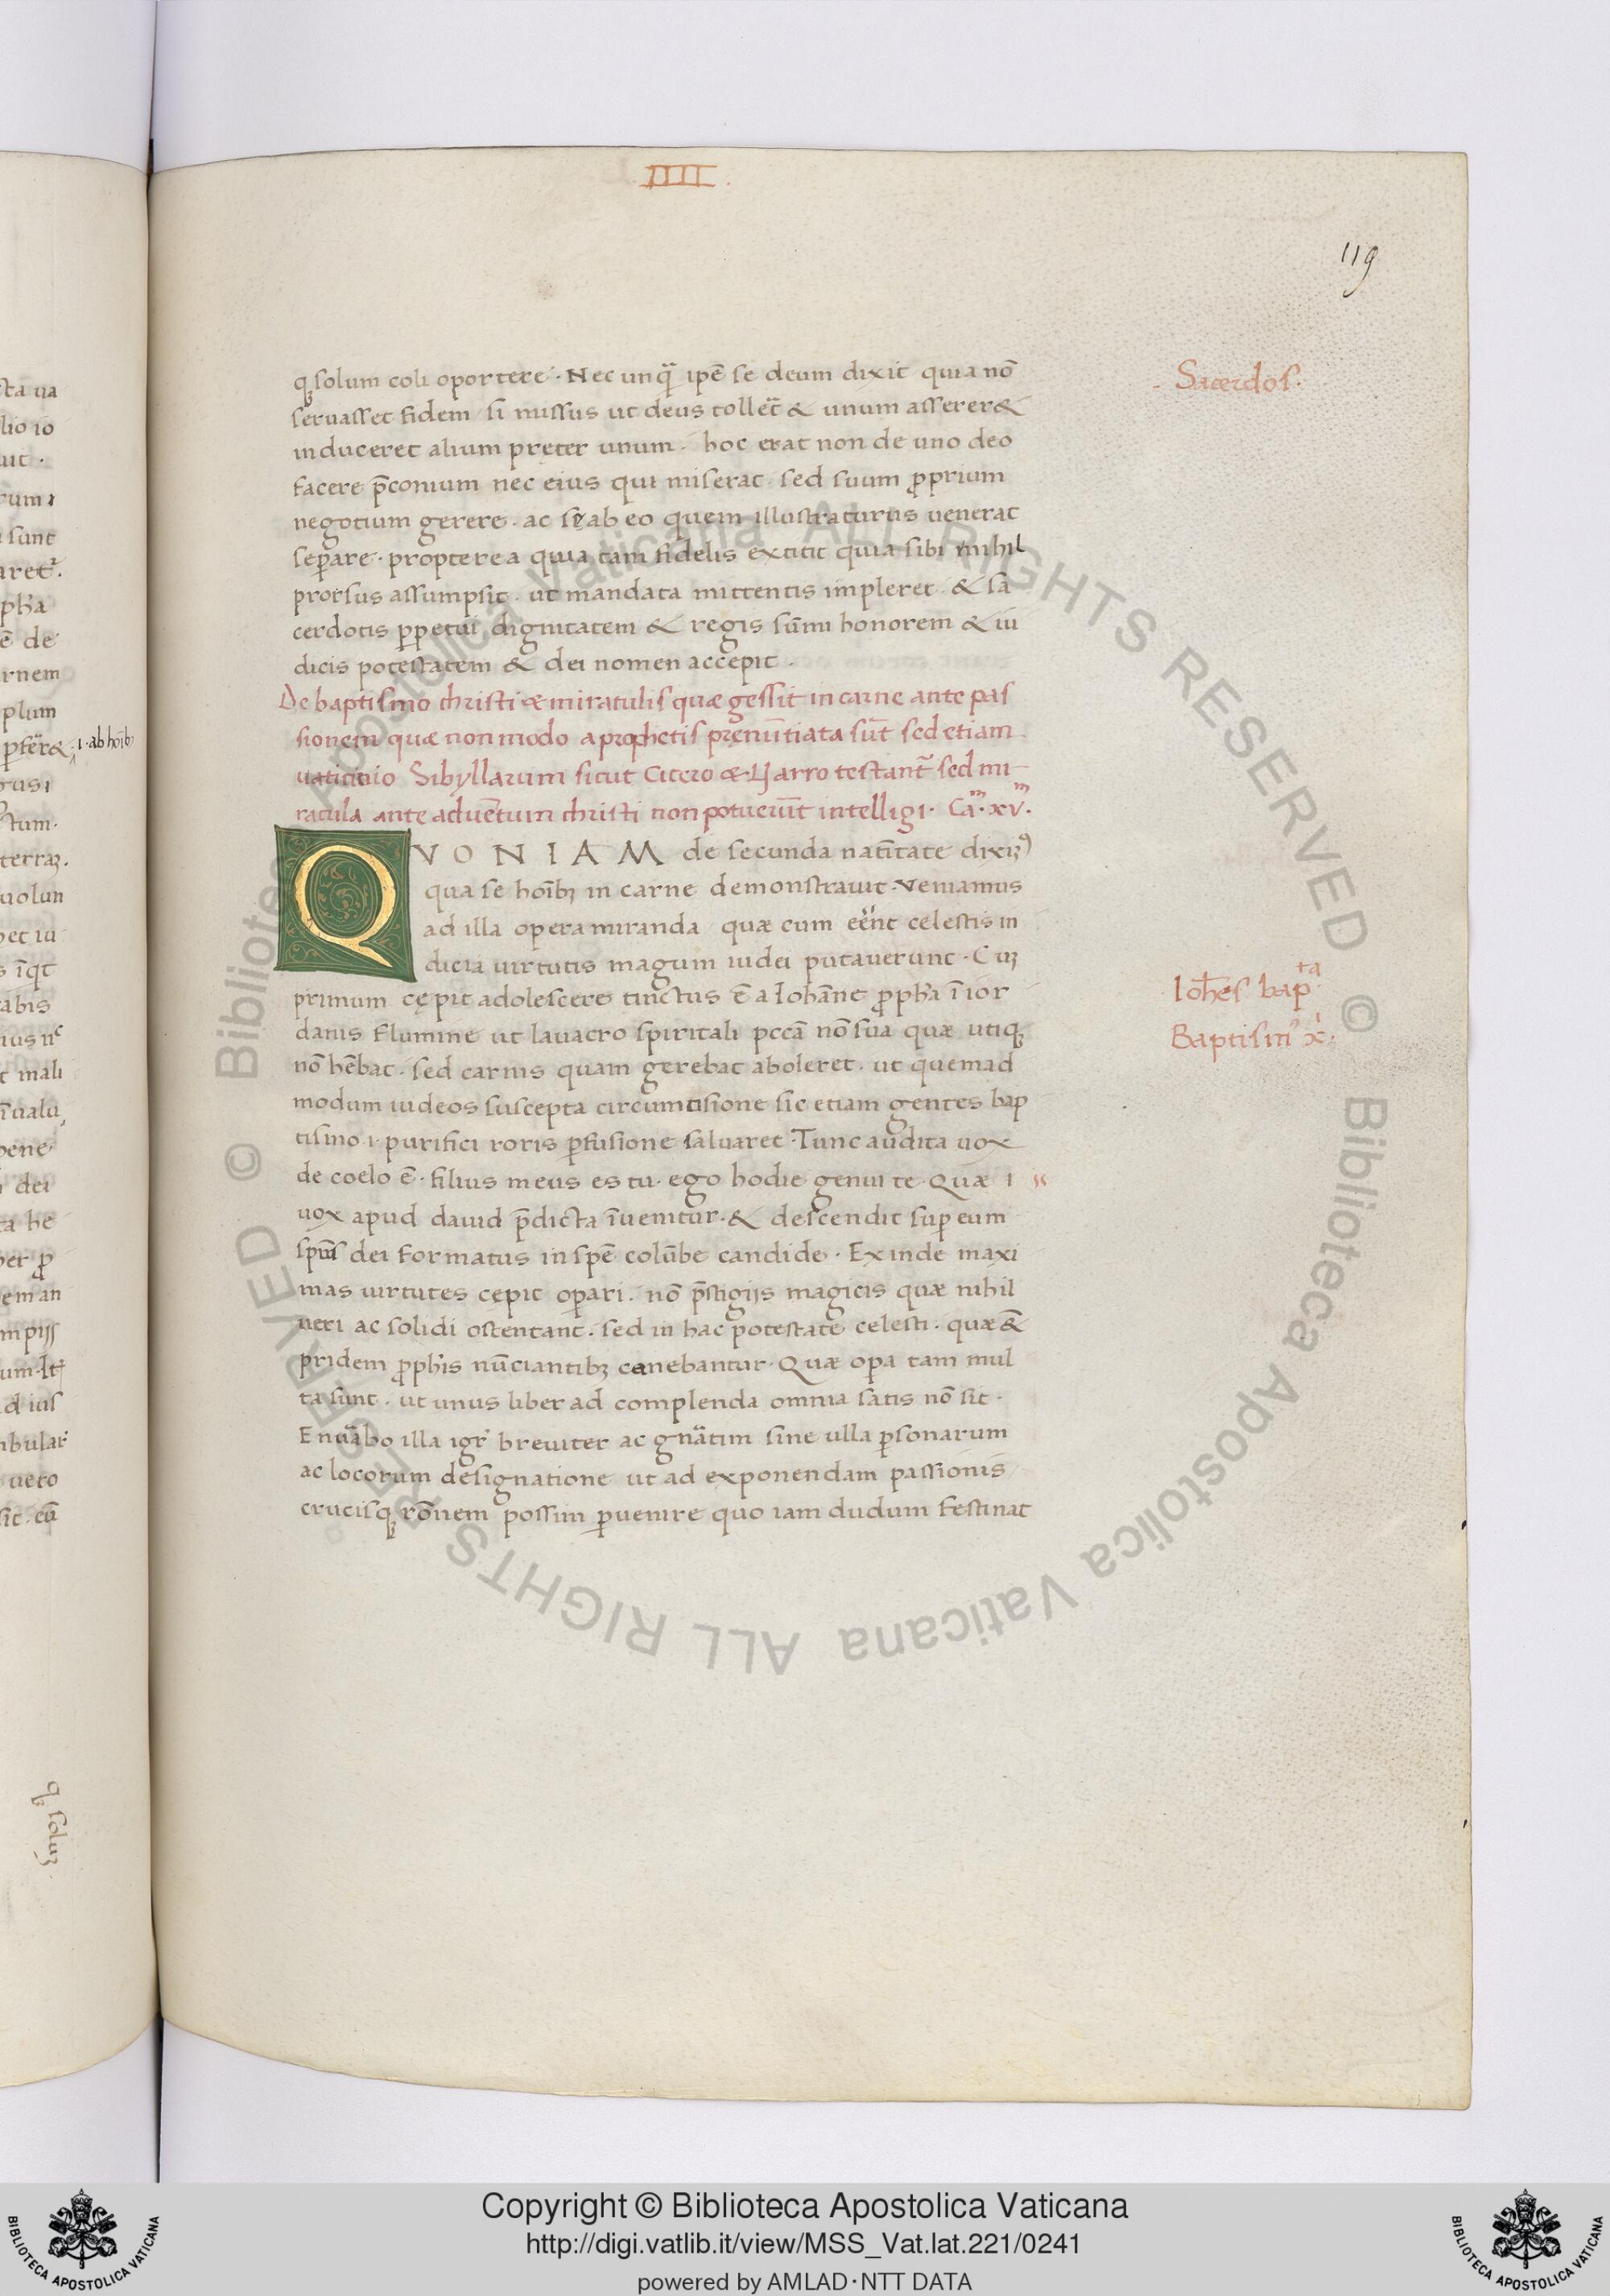 IIII.
119
q; solum coli oportere. Nec unq̃ ipẽ se deum dixit quia nõ
seruasset fidem si missus ut deus tolleret & unum asserer&
induceret alium pręter unum. hoc erat non de uno deo
facere p̃conium nec eius qui miserat sed suum proprium
negotium gerere. ac se ab eo quem illustraturus uenerat
separe. propterea quia tam fidelis extitit quia sibi nihil
prorsus assumpsit. ut mandata mittentis impleret. & sa
cerdotis perpetui dignitatem & regis sũmi honorem & iu
dicis potestatem & dei nomen accepit.
De baptismo christi & miraculis quæ gessit in carne ante pas
sionem quæ non modo a prophetis prenũtiata sũt sed etiam
uaticinio Sibyllarum sicut Cicero & Varro testant̃ sed mi
racula ante aduẽtum christi non potuerũt intelligi. Cam. xvm.
QVONIAM de secunda natĩtate dixim9
qua se hoĩb; in carne demonstrauit. Veniamus
ad illa opera miranda quæ cum eẽnt celestis in
dicia uirtutis magum iudei putauerunt. Cum
primum cępit adolescere tinctus ẽ a Iohãne propha ĩ ior
danis flumine ut lauacro spiritali pccã nõ sua quæ utiq;
nõ hẽbat. sed carnis quam gerebat aboleret. ut quemad
modum iudeos suscepta circumcisione sic etiam gentes bap
tismo .i. purifici roris pfusione saluaret. Tunc audita uox
de coelo ẽ. filius meus es tu. ego hodie genui te. Quæ
uox apud dauid p̃dicta ĩuenitur. & descendit sup eum
spũs dei formatus in spẽ colũbe candide. Exinde maxi
mas uirtutes cepit opari. nõ p̃stigijs magicis quæ nihil
ueri ac solidi ostentant. sed in hac potestate celesti. quæ &
pridem prophis nũciantib; canebantur. Quæ opa tam mul
ta sunt. ut unus liber ad complenda omnia satis nõ sit.
Enũabo illa igr̃ breuiter ac gnãtim sine ulla psonarum
ac locorum designatione ut ad exponendam passionis
crucisq; rõnem possim puenire quo iam dudum festinat
Sacerdos.
Iohes bap.ta
Baptism9 x̃i.
.i. ab hoĩb;
q; solum
© Biblioteca Apostolica Vaticana ALL RIGHTS RESERVED © Biblioteca Apostolica Vaticana ALL RIGHTS RESERVED
Copyright © Biblioteca Apostolica Vaticana
http://digi.vatlib.it/view/MSS_Vat.lat.221/0241
powered by AMLAD·NTT DATA
BIBLIOTECA APOSTOLICA VATICANA
BIBLIOTECA APOSTOLICA VATICANA